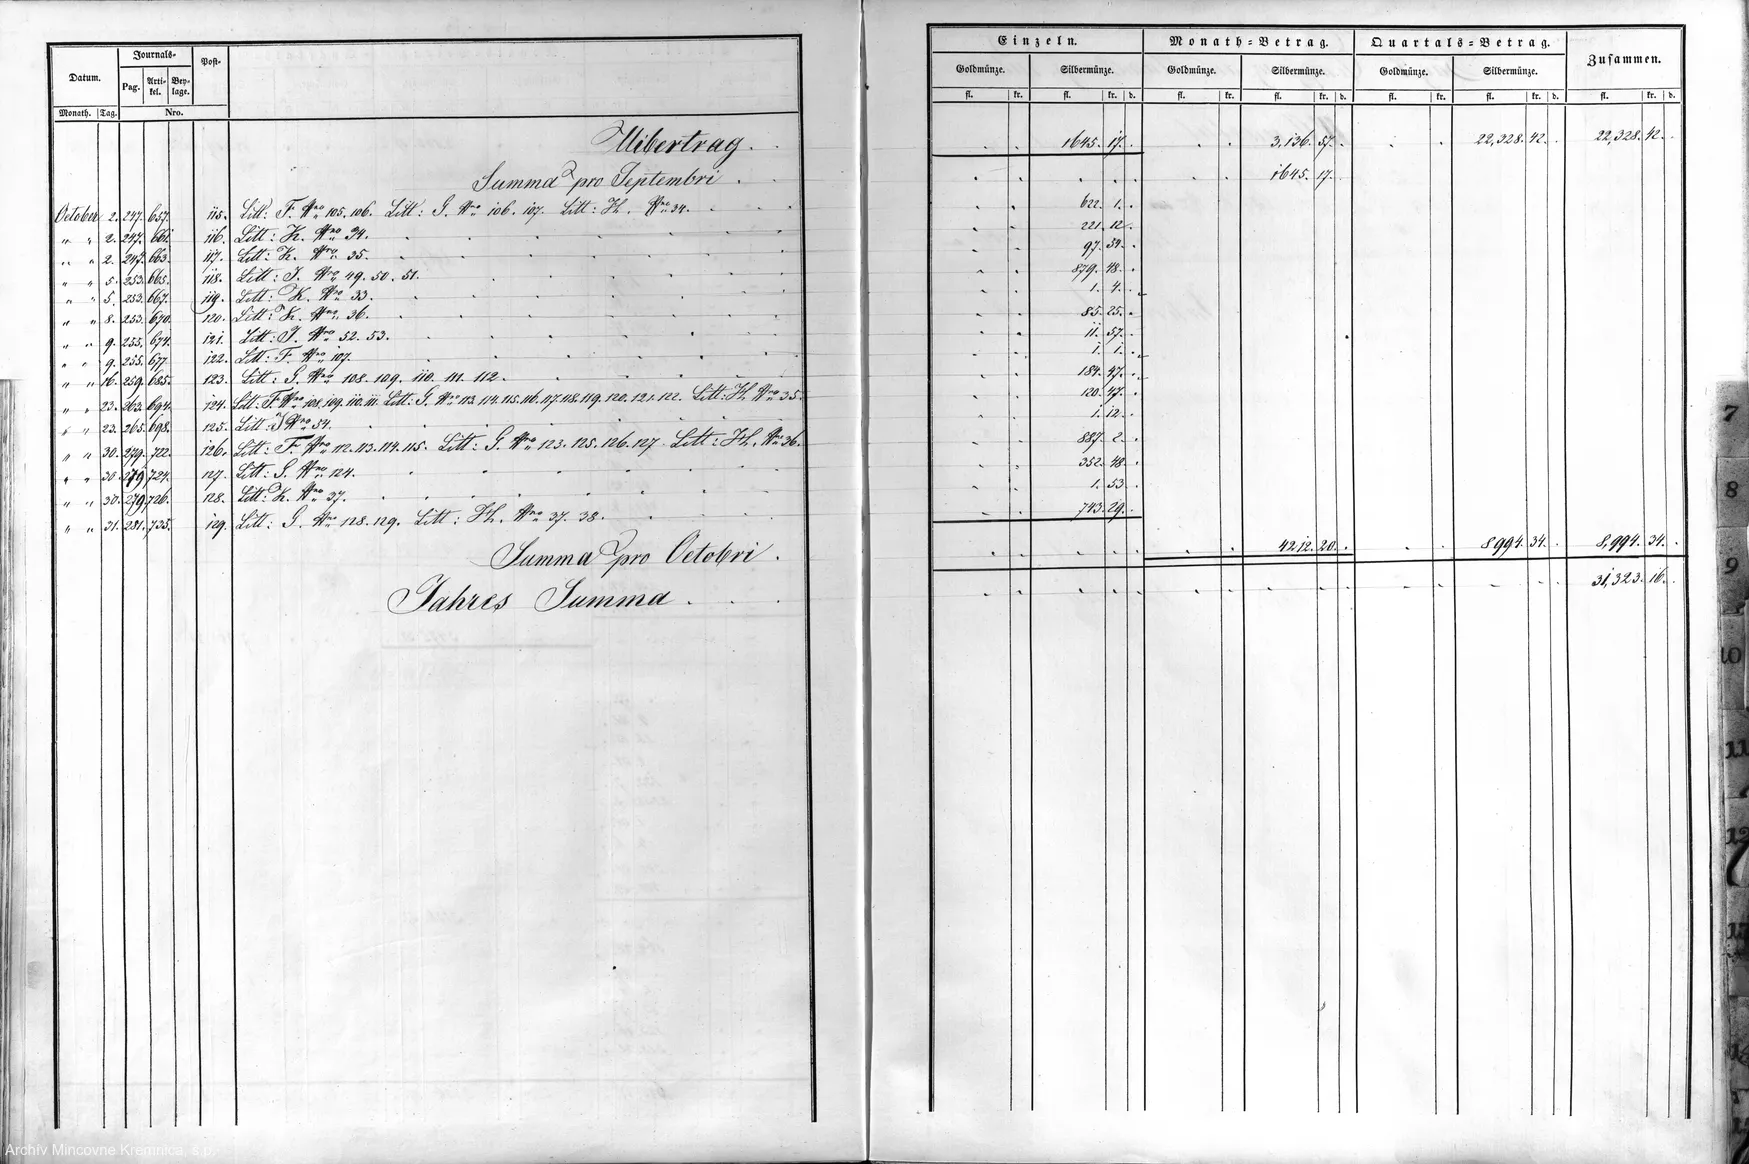 Datum. Journals- Post-
Pag. Arti-kel. Bey-lage.
Monath. Tag. Nro.
Einzeln. Monath-Betrag. Quartals-Betrag. Zusammen.
Goldmünze. Silbermünze. Goldmünze. Silbermünze. Goldmünze. Silbermünze.
fl. kr. fl. kr. d. fl. kr. fl. kr. d. fl. kr. fl. kr. d. fl. kr. d.
Uibertrag. 1645. 17. 3,136. 57. 22,328. 42. 22,328. 42.
Summa pro Septembri 1645. 17.
October 2. 247. 657. 115. Litt: F. Nro 105. 106. Litt: G. Nro 106. 107. Litt: H. Nro 34. 622. 1.
" " 2. 247. 661. 116. Litt: K. Nro 34. 221. 12.
" " 2. 247. 663. 117. Litt: K. Nro 35. 97. 54.
" " 5. 253. 665. 118. Litt: J. Nro 49. 50. 51. 879. 48.
" " 5. 253. 667. 119. Litt: K. Nro 33. 1. 4.
" " 8. 253. 670. 120. Litt: K. Nro 36. 85. 25.
" " 9. 255. 674. 121. Litt: J. Nro 52. 53. 11. 57.
" " 9. 255. 677. 122. Litt: F. Nro 107. 1. 1.
" " 16. 259. 685. 123. Litt: G. Nro 108. 109. 110. 111. 112. 184. 47.
" " 23. 263. 694. 124. Litt: F. Nro 108. 109. 110. 111. Litt: G. Nro 113. 114. 115. 116. 117. 118. 119. 120. 121. 122. Litt: H. Nro 35. 120. 47.
" " 23. 265. 698. 125. Litt: J Nro 54. 1. 12.
" " 30. 279. 722. 126. Litt: F. Nro 112. 113. 114. 115. Litt: G. Nro 123. 125. 126. 127. Litt: H. Nro 36. 887. 2.
" " 30. 279 724. 127. Litt: G. Nro 124. 352. 48.
" " 30. 279 726. 128. Litt: K. Nro 37. 1. 53.
" " 31. 281. 735. 129. Litt: G. Nro 128. 129. Litt: H. Nro 37. 38. 743. 29.
Summa pro Octobri. 4212. 20. 8994. 34. 8,994. 34.
Jahres Summa 31,323. 16.
7
8
9
10
11
12
Archív Mincovne Kremnica, š.p.